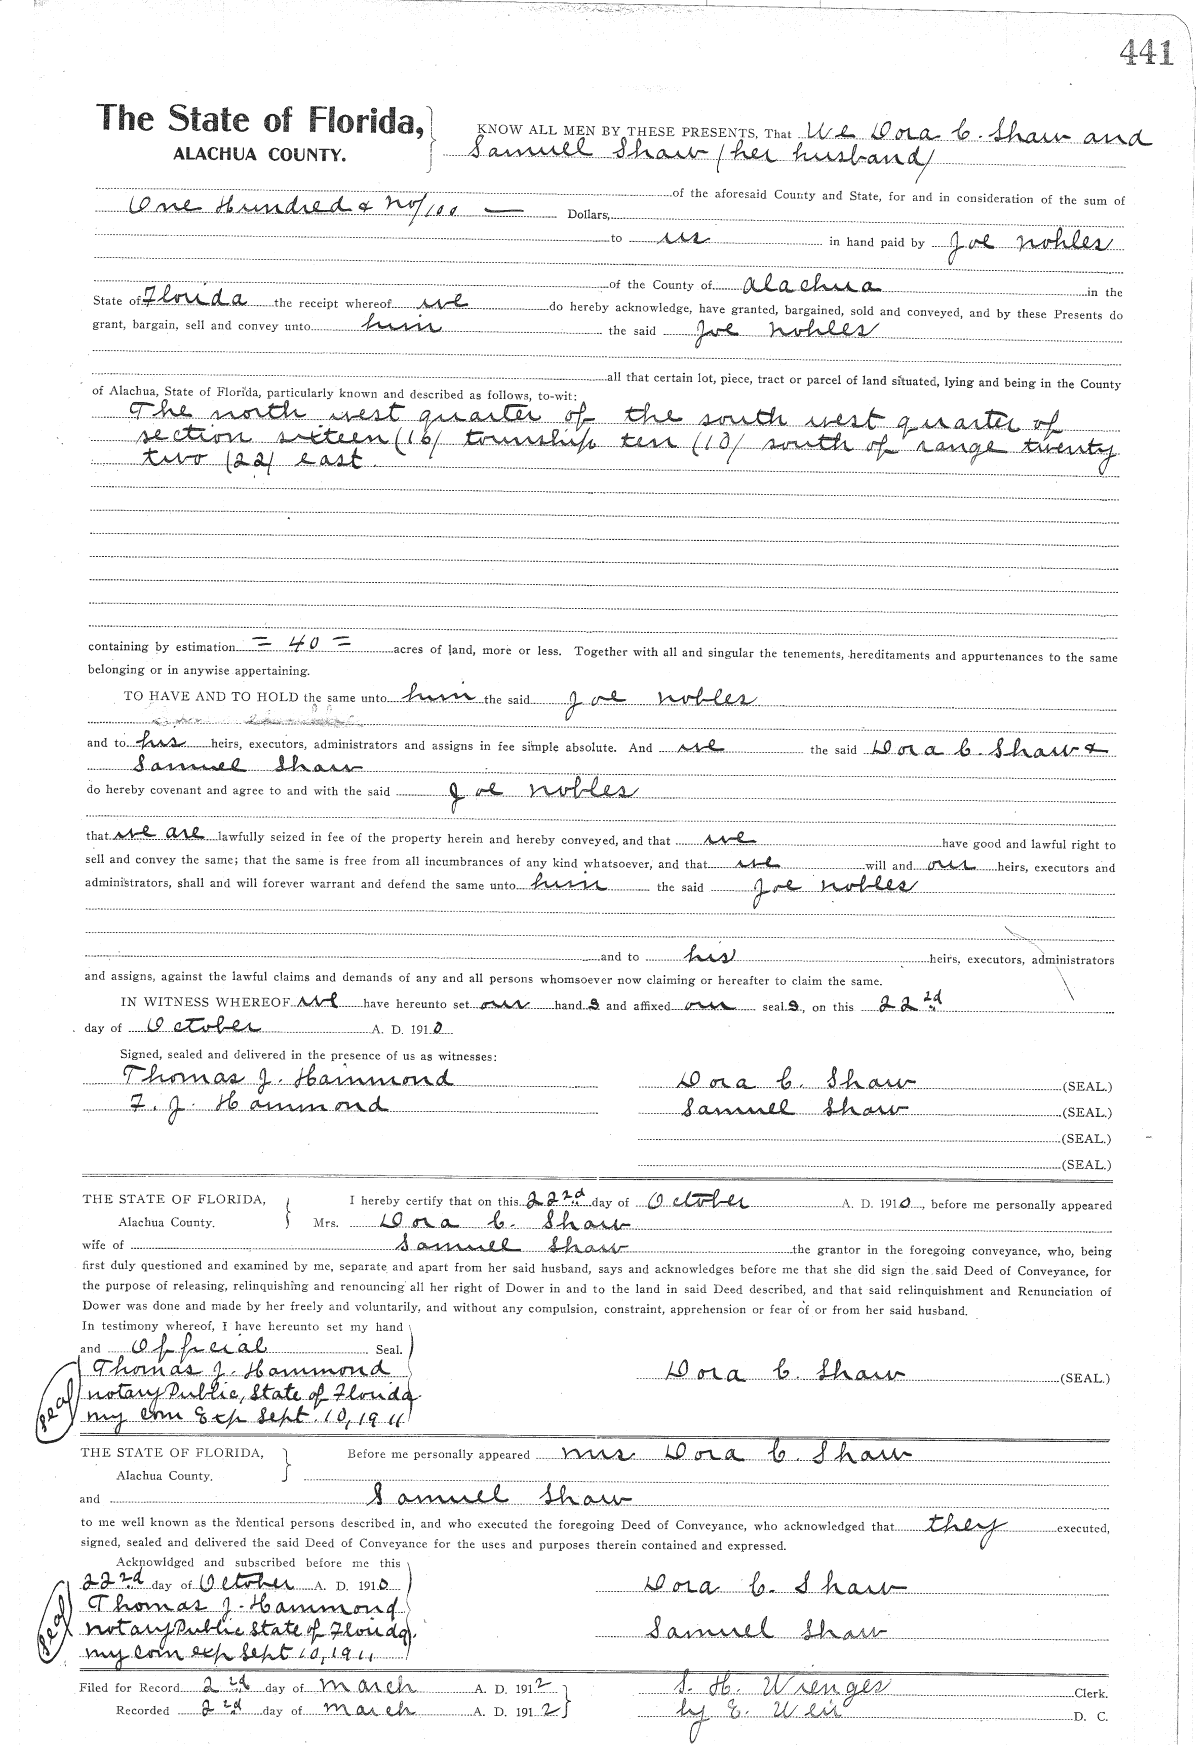 441
The State of Florida,
ALACHUA COUNTY.
KNOW ALL MEN BY THESE PRESENTS, That We Dora C. Shaw and
Samuel Shaw (her husband)
of the aforesaid County and State, for and in consideration of the sum of
One Hundred & No/100 — Dollars,
to us in hand paid by Joe Nobles
of the County of Alachua in the
State of Florida the receipt whereof we do hereby acknowledge, have granted, bargained, sold and conveyed, and by these Presents do
grant, bargain, sell and convey unto him the said Joe Nobles
all that certain lot, piece, tract or parcel of land situated, lying and being in the County
of Alachua, State of Florida, particularly known and described as follows, to-wit:
The north west quarter of the south west quarter of
section sixteen (16) township ten (10) south of range twenty
two (22) east.
containing by estimation = 40 = acres of land, more or less. Together with all and singular the tenements, hereditaments and appurtenances to the same
belonging or in anywise appertaining.
TO HAVE AND TO HOLD the same unto him the said Joe Nobles
and to his heirs, executors, administrators and assigns in fee simple absolute. And we the said Dora C. Shaw &
Samuel Shaw
do hereby covenant and agree to and with the said Joe Nobles
that we are lawfully seized in fee of the property herein and hereby conveyed, and that we have good and lawful right to
sell and convey the same; that the same is free from all incumbrances of any kind whatsoever, and that we will and our heirs, executors and
administrators, shall and will forever warrant and defend the same unto him the said Joe Nobles
and to his heirs, executors, administrators
and assigns, against the lawful claims and demands of any and all persons whomsoever now claiming or hereafter to claim the same.
IN WITNESS WHEREOF we have hereunto set our hand s and affixed our seal s, on this 22nd
day of October A. D. 1910
Signed, sealed and delivered in the presence of us as witnesses:
Thomas J. Hammond Dora C. Shaw (SEAL.)
F. J. Hammond Samuel Shaw (SEAL.)
(SEAL.)
(SEAL.)
THE STATE OF FLORIDA, I hereby certify that on this 22nd day of October A. D. 1910, before me personally appeared
Alachua County. Mrs. Dora C. Shaw
wife of Samuel Shaw the grantor in the foregoing conveyance, who, being
first duly questioned and examined by me, separate and apart from her said husband, says and acknowledges before me that she did sign the said Deed of Conveyance, for
the purpose of releasing, relinquishing and renouncing all her right of Dower in and to the land in said Deed described, and that said relinquishment and Renunciation of
Dower was done and made by her freely and voluntarily, and without any compulsion, constraint, apprehension or fear of or from her said husband.
In testimony whereof, I have hereunto set my hand
and Official Seal.
Thomas J. Hammond Dora C. Shaw (SEAL.)
Seal Notary Public, State of Florida
my com Exp Sept. 10, 1911
THE STATE OF FLORIDA, Before me personally appeared Mrs Dora C. Shaw
Alachua County.
and Samuel Shaw
to me well known as the identical persons described in, and who executed the foregoing Deed of Conveyance, who acknowledged that they executed,
signed, sealed and delivered the said Deed of Conveyance for the uses and purposes therein contained and expressed.
Acknowldged and subscribed before me this
22nd day of October A. D. 1910 Dora C. Shaw
Thomas J. Hammond
Seal Notary Public State of Florida. Samuel Shaw
my com exp Sept 10, 1911
Filed for Record 2nd day of March A. D. 1912 S. H. Wienges Clerk.
Recorded 2nd day of March A. D. 1912 by E. Weir D. C.